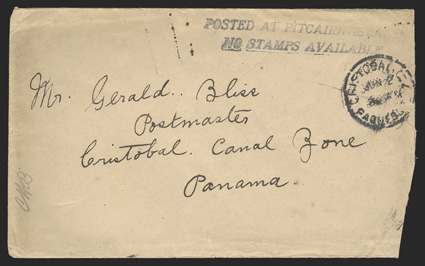 POSTED AT PITCAIRN
NO STAMPS AVAILABLE
CRISTOBAL
PAQUEBOT
Mr. Gerald. Bliss
Postmaster
Cristobal. Canal Zone
Panama.